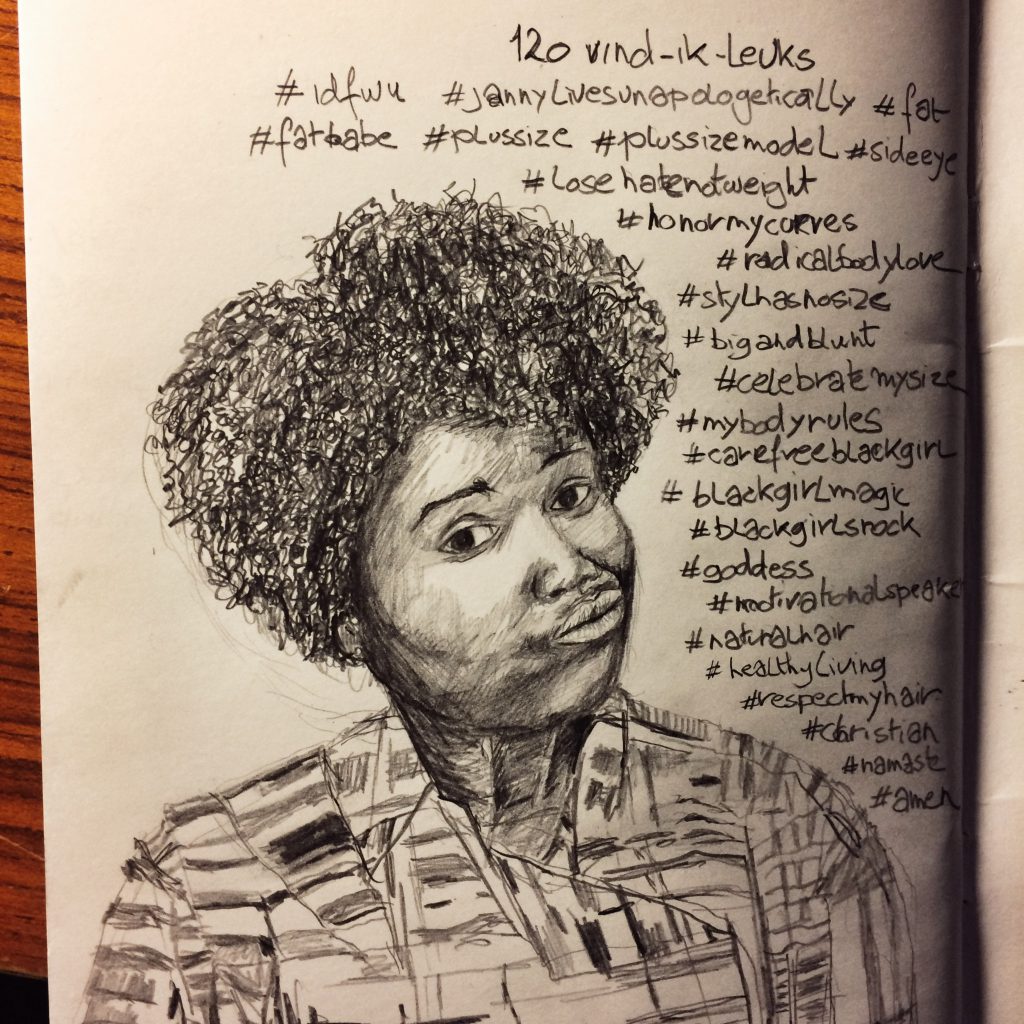 120 vind-ik-leuks
#idfwu #jannylivesunapologetically #fat
#fatbabe #plussize #plussizemodel #sideeye
#losehatenotweight
#honormycurves
#radicalbodylove
#stylhasnosize
#bigandblunt
#celebratemysize
#mybodyrules
#carefreeblackgirl
#blackgirlmagic
#blackgirlsrock
#goddess
#motivationalspeaker
#naturalhair
#healthyliving
#respectmyhair
#christian
#namaste
#amen